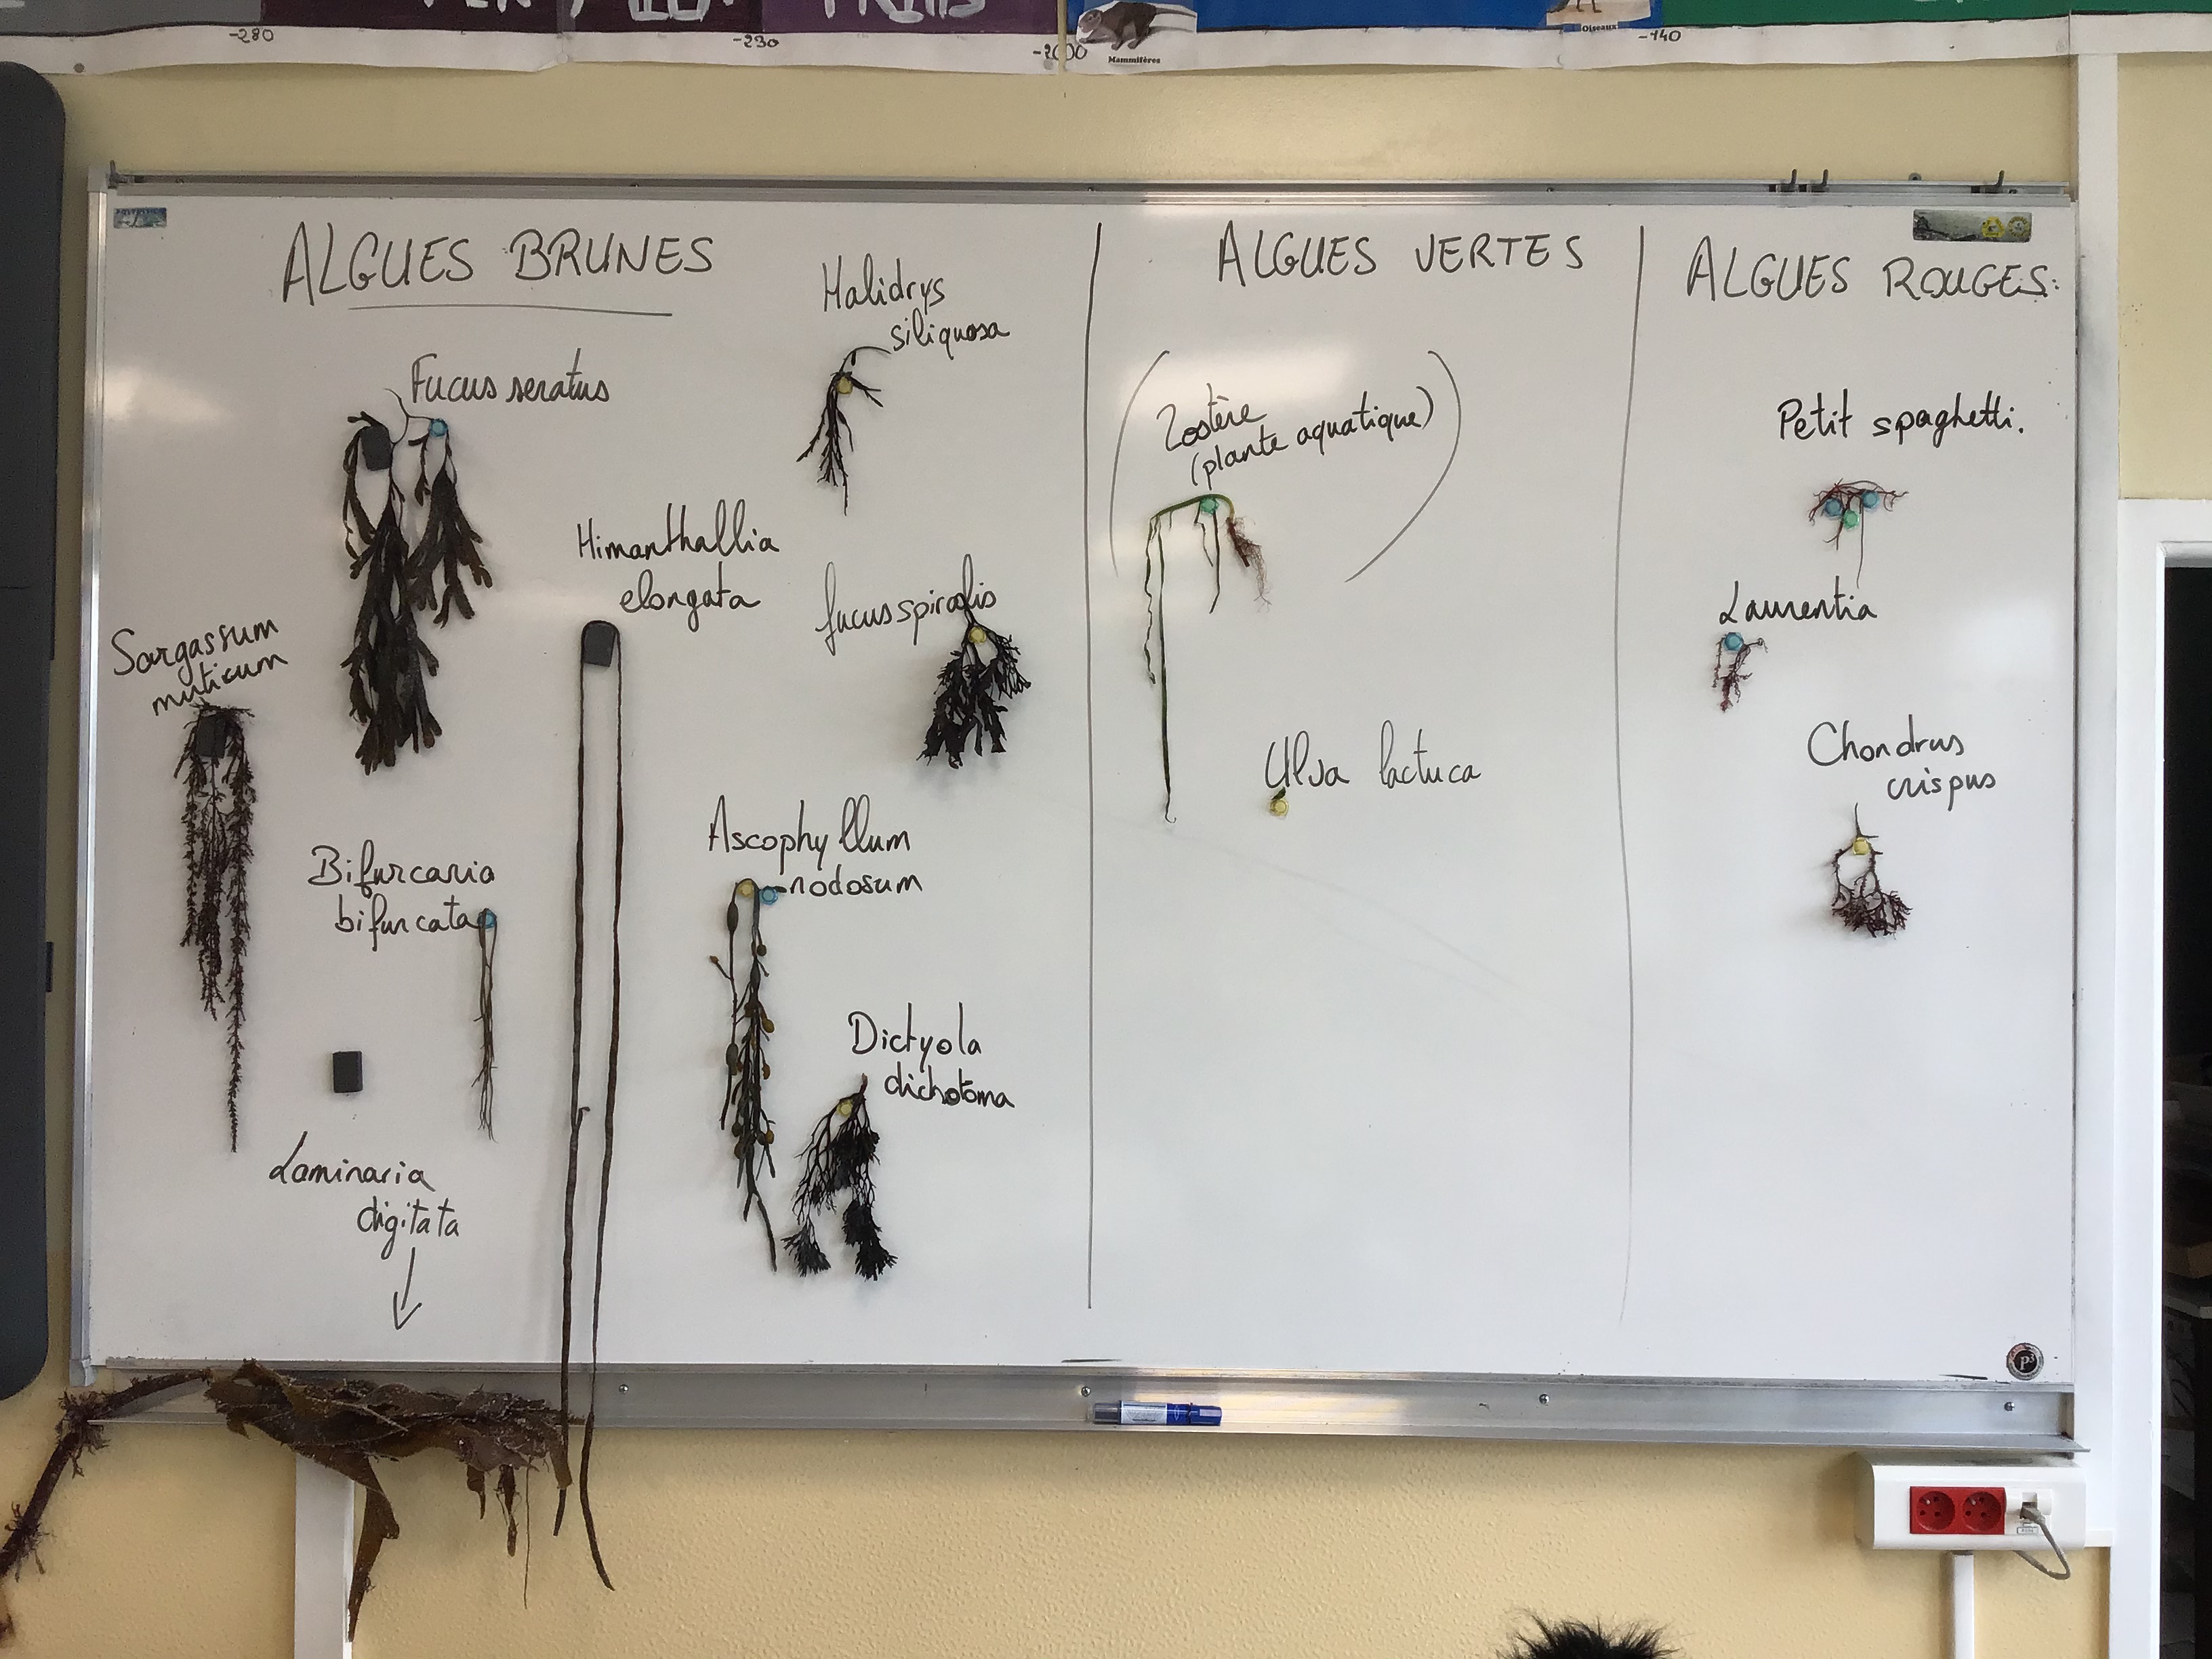 -280
-230
-2000
Mammifères
Oiseaux
-140
ALGUES BRUNES
Halidrys
siliquosa
Fucus seratus
Himanthallia
elongata
fucus spiralis
Sargassum
muticum
Bifurcaria
bifurcata
Ascophyllum
nodosum
Dictyola
dichotoma
Laminaria
digitata
ALGUES VERTES
Zostère
(plante aquatique)
Ulva lactuca
ALGUES ROUGES:
Petit spaghetti.
Laurentia
Chondrus
crispus
P³